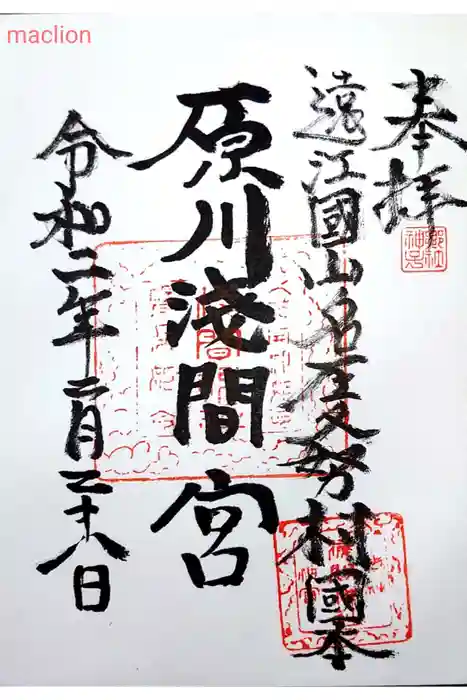 maclion
奉拝
遠江國山名 久努村國本
原川淺間宮
令和二年二月二十八日